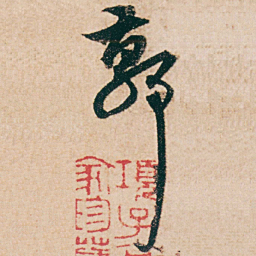 郭
項子京
家珍藏